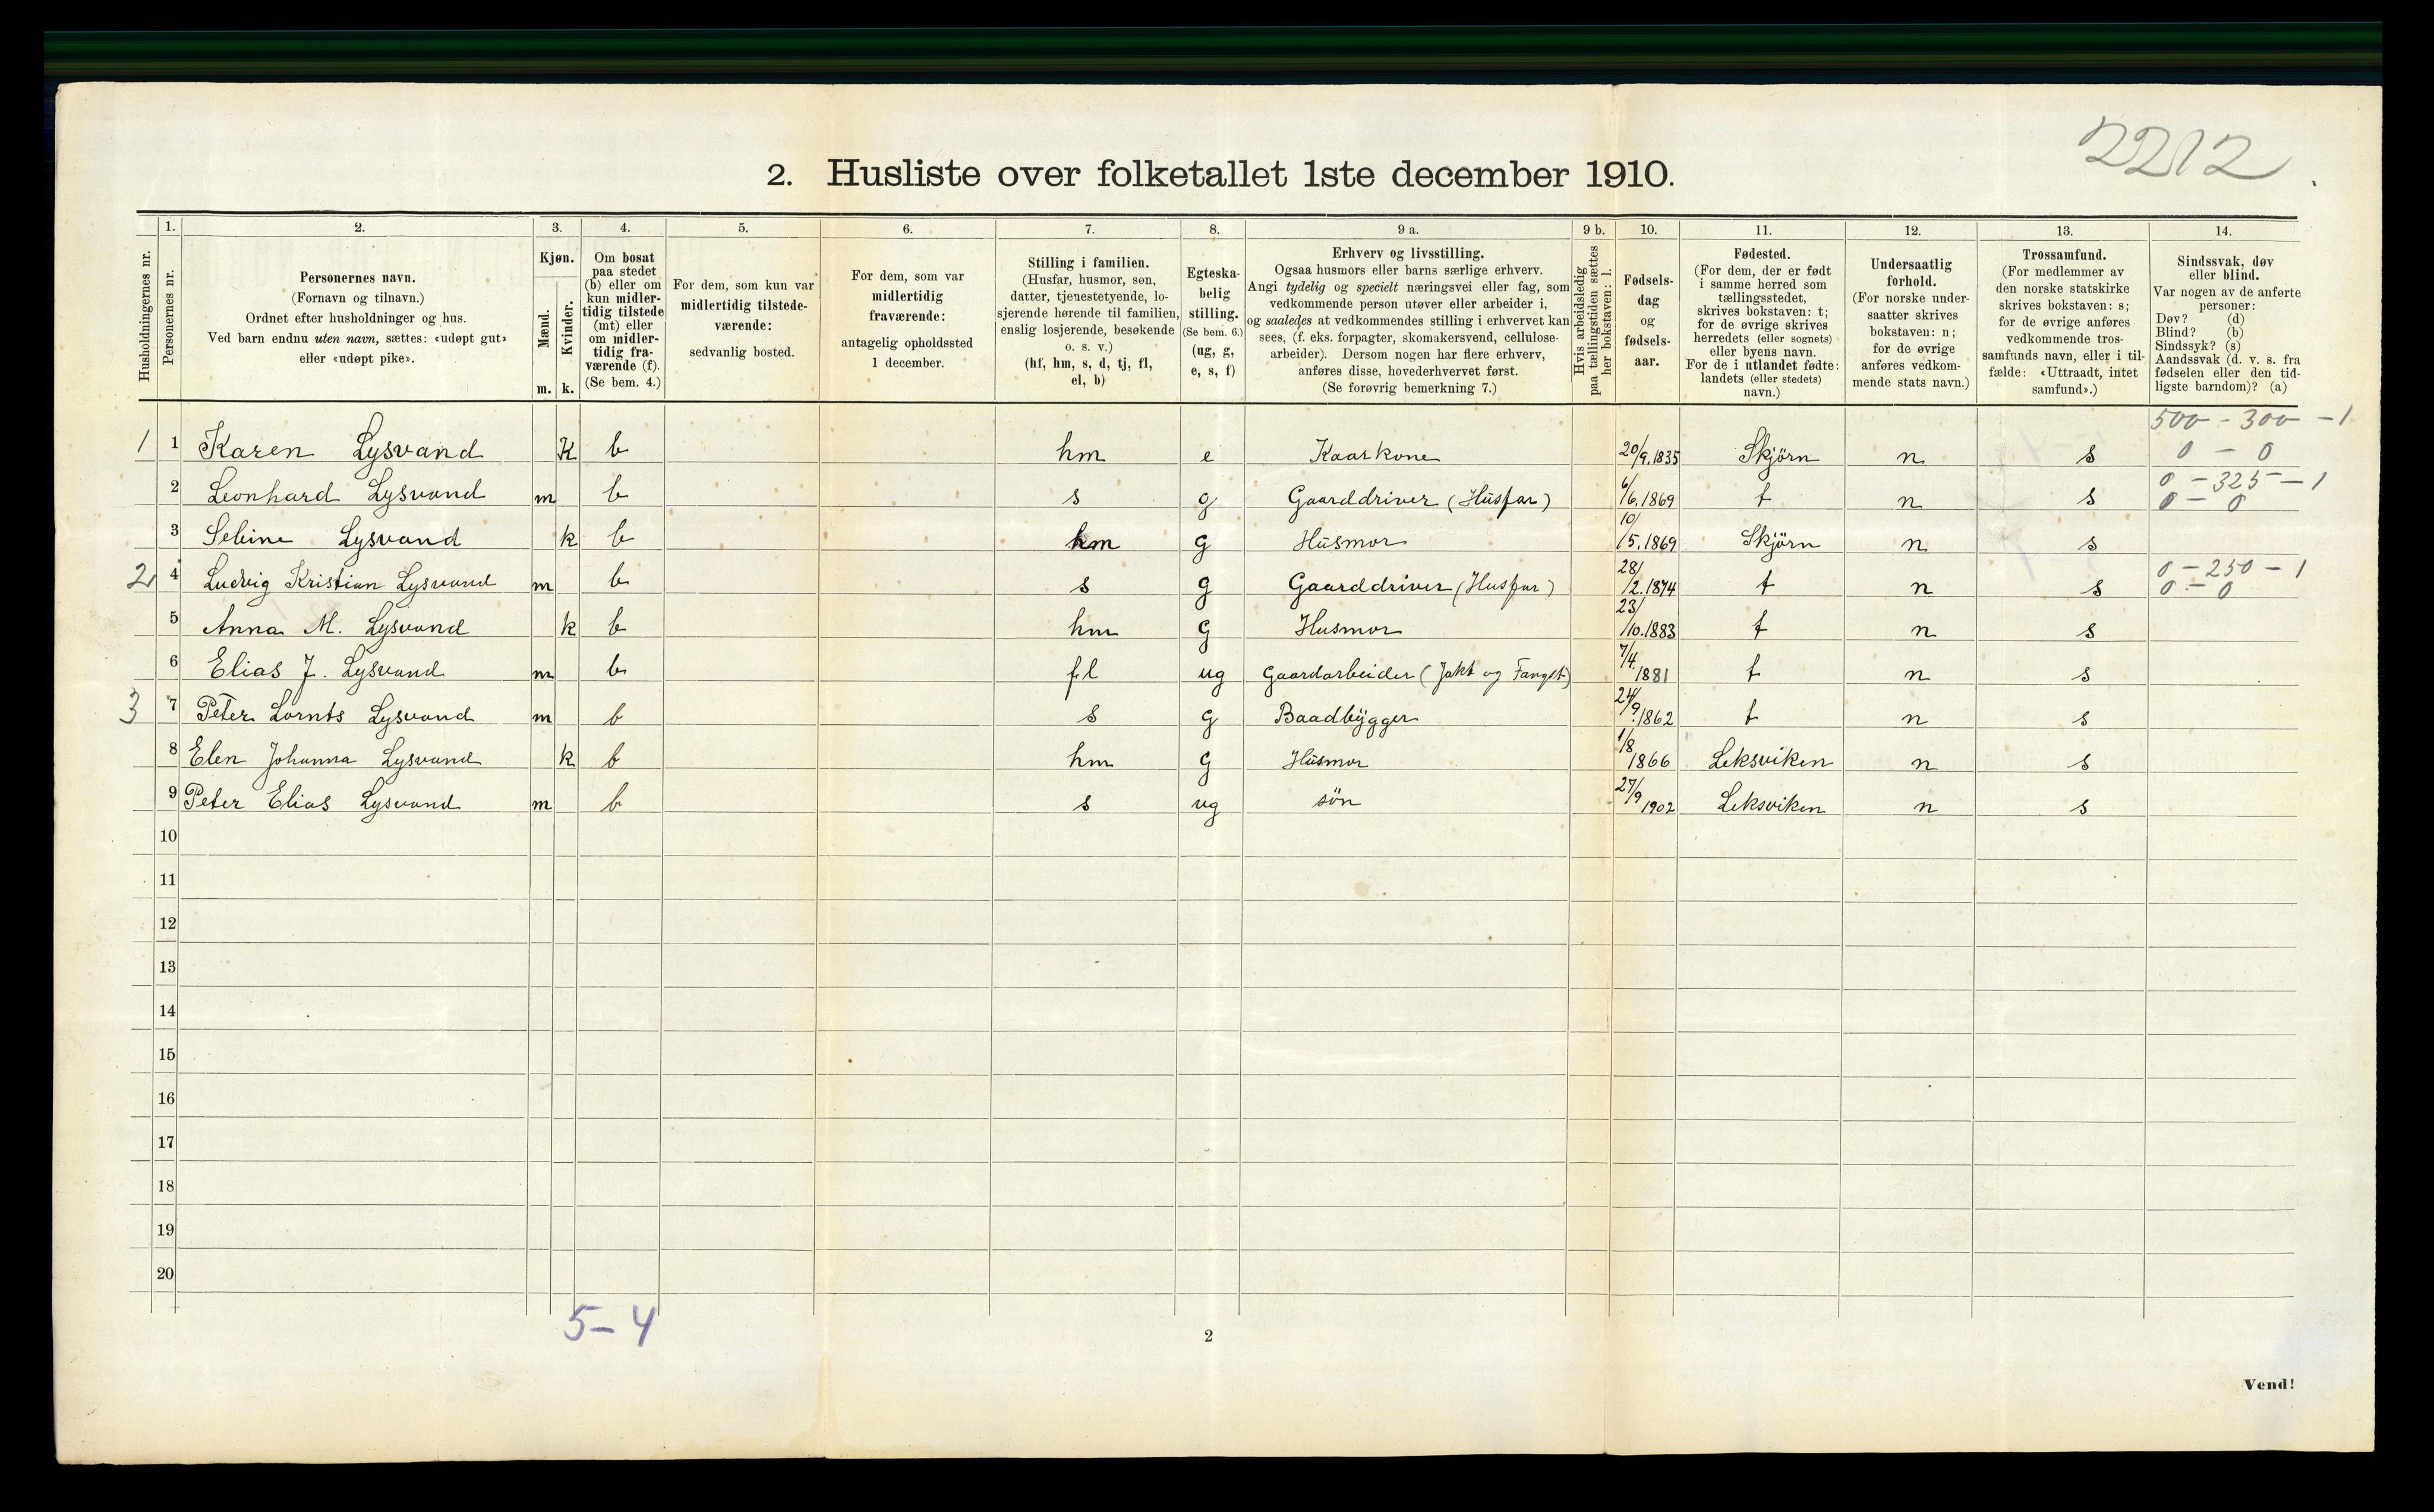 2212
2. Husliste over folketallet 1ste december 1910.
Husholdningernes nr.
1. Personernes nr.
2. Personernes navn.
(Fornavn og tilnavn.)
Ordnet efter husholdninger og hus.
Ved barn endnu uten navn, sættes: «udøpt gut»
eller «udøpt pike».
3. Kjøn.
Mænd. m.
Kvinder. k.
4. Om bosat
paa stedet
(b) eller om
kun midler-
tidig tilstede
(mt) eller
om midler-
tidig fra-
værende (f).
(Se bem. 4.)
5. For dem, som kun var
midlertidig tilstede-
værende:
sedvanlig bosted.
6. For dem, som var
midlertidig
fraværende:
antagelig opholdssted
1 december.
7. Stilling i familien.
(Husfar, husmor, søn,
datter, tjenestetyende, lo-
sjerende hørende til familien,
enslig losjerende, besøkende
o. s. v.)
(hf, hm, s, d, tj, fl,
el, b)
8. Egteska-
belig
stilling.
(Se bem. 6.)
(ug, g,
e, s, f)
9 a. Erhverv og livsstilling.
Ogsaa husmors eller barns særlige erhverv.
Angi tydelig og specielt næringsvei eller fag, som
vedkommende person utøver eller arbeider i,
og saaledes at vedkommendes stilling i erhvervet kan
sees, (f. eks. forpagter, skomakersvend, cellulose-
arbeider). Dersom nogen har flere erhverv,
anføres disse, hovederhvervet først.
(Se forøvrig bemerkning 7.)
9 b. Hvis arbeidsledig
paa tællingstiden sættes
her bokstaven: l.
10. Fødsels-
dag
og
fødsels-
aar.
11. Fødested.
(For dem, der er født
i samme herred som
tællingsstedet,
skrives bokstaven: t;
for de øvrige skrives
herredets (eller sognets)
eller byens navn.
For de i utlandet fødte:
landets (eller stedets)
navn.)
12. Undersaatlig
forhold.
(For norske under-
saatter skrives
bokstaven: n;
for de øvrige
anføres vedkom-
mende stats navn.)
13. Trossamfund.
(For medlemmer av
den norske statskirke
skrives bokstaven: s;
for de øvrige anføres
vedkommende tros-
samfunds navn, eller i til-
fælde: «Uttraadt, intet
samfund».)
14. Sindssvak, døv
eller blind.
Var nogen av de anførte
personer:
Døv? (d)
Blind? (b)
Sindssyk? (s)
Aandssvak (d. v. s. fra
fødselen eller den tid-
ligste barndom)? (a)
500 - 300 - 1
1 1 Karen Lysvand K b hm e Kaarkone 20/9.1835 Skjörn n s 0 - 0
0 - 325 - 1
2 Leonhard Lysvand m b s g Gaarddriver (Husfar) 6/6.1869 t n s 0 - 0
3 Seline Lysvand k b hm g Husmor 10/5.1869 Skjörn n s
0 - 250 - 1
2 4 Ludvig Kristian Lysvand m b s g Gaarddriver (Husfar) 28/2.1874 t n s 0 - 0
5 Anna M. Lysvand k b hm g Husmor 23/10.1883 t n s
6 Elias J. Lysvand m b fl ug Gaardarbeider (Jakt og Fangst) 7/4.1881 t n s
3 7 Peter Lornts Lysvand m b s g Baadbygger 24/9.1862 t n s
8 Elen Johanna Lysvand k b hm g Husmor 1/8 1866 Leksviken n s
9 Peter Elias Lysvand m b s ug sön 27/9 1902 Leksviken n s
10
11
12
13
14
15
16
17
18
19
20
5-4
2
Vend!